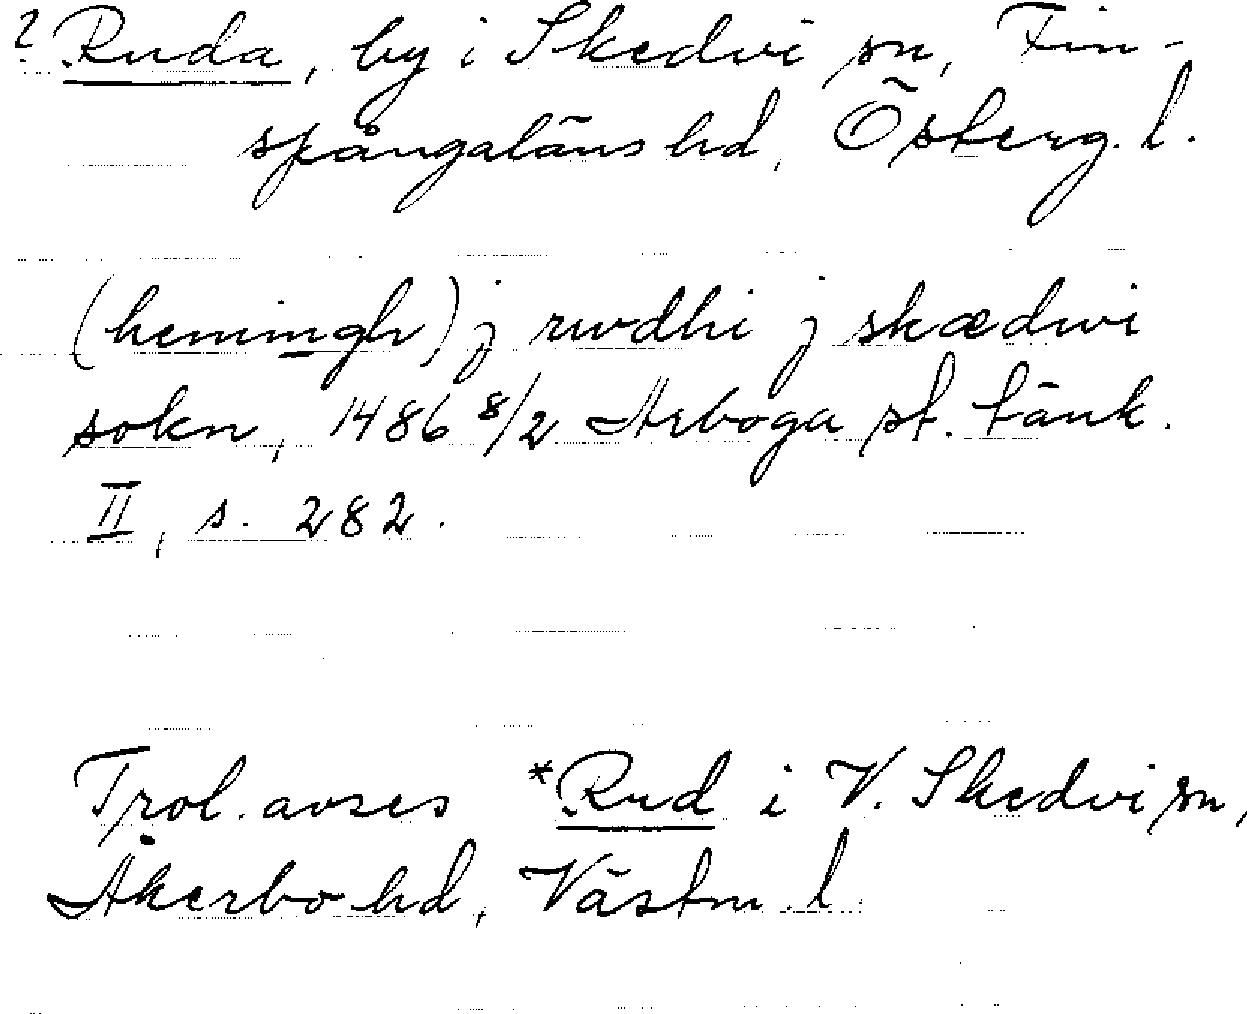 ? Ruda, by i Skedvi sn, Fin-
spångaläns hd, Österg. l.
(hemingh) j rwdhi j skædwi
sokn, 1486 8/2 Arboga st. tänk.
II, s. 282.
Trol. avses *Rud i V. Skedvi sn,
Åkerbo hd, Västm. l.